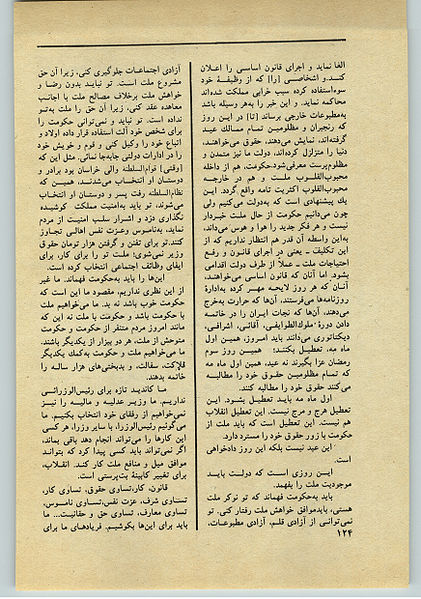 الغا نماید و اجرای قانون اساسی را اعلان
کند. و اشخاصی [را] که از وظیفهٔ خود
سوءاستفاده کرده سبب خرابی مملکت شده‌اند
محاکمه نماید. و این خبر را به‌هر وسیله باشد
به‌مطبوعات خارجی برساند [تا] در این روز
که رنجبران و مظلومین تمام ممالك عید
گرفته‌اند، نمایش می‌دهند، حقوق می‌خواهند،
دنیا را متزلزل کرده‌اند، دولت ما نیز متمدن و
مظلوم‌پرست معرفی شود. حکومت، هم از داخله
محبوب‌القلوب ملت و هم در خارجه
محبوب‌القلوب اکثریت تامه واقع گردد. این
یك پیشنهادی است که به‌دولت می‌کنیم ولی
چون می‌دانیم حکومت از حال ملت خبردار
نیست و هر فکر جدید را هوا و هوس می‌داند،
به‌این واسطه آن قدر هم انتظار نداریم که از
این تکلیف ـ یعنی در اجرای قانون و رفع
احتیاجات ملت ـ عملاً از طرف دولت اقدامی
بشود. اما آنان که قانون اساسی می‌خواهند،
آنان که هر روز لایحه مهر کرده به‌ادارهٔ
روزنامه‌ها می‌فرستند، آن‌ها که حرارت به‌خرج
می‌دهند، آن‌ها که نجات ایران را در خاتمه
دادن دورهٔ ملوك‌الطوایفی، آقائی، اشرافی،
دیکتاتوری می‌دانند باید امروز، همین اول
ماه مه، تعطیل بکنند؛ همین روز سوم
رمضان عزا بگیرند نه عید، همین اول ماه مه
که تمام مظلومین حقوق خود را مطالبه
می‌کنند حقوق خود را مطالبه کنند.
اول ماه مه باید تعطیل بشود. این
تعطیل هرج و مرج نیست. این تعطیل انقلاب
هم نیست. این تعطیل است که باید ملت از
حکومت با زور حقوق خود را مسترد دارد.
این عید نیست بلکه این روز دادخواهی
است.
این روزی است که دولت باید
موجودیت ملت را بفهمد.
باید به‌حکومت فهماند که تو نوکر ملت
هستی، باید موافق خواهش ملت رفتار کنی. تو
نمی‌توانی از آزادی قلم، آزادی مطبوعات،
۱۲۴
آزادی اجتماعات جلوگیری کنی، زیرا آن حق
مشروع ملت است. تو نباید بدون رضا و
خواهش ملت برخلاف مصالح ملت با اجانب
معاهده عقد کنی، زیرا آن حق را ملت به‌تو
نداده است. تو نباید و نمی‌توانی حکومت را
برای شخص خود آلت استفاده قرار داده اولاد و
اتباع خود را وکیل کنی و قوم و خویش خود
را در ادارات دولتی جابه‌جا نمائی. مثل این که
[وقتی] قوام‌السلطنه والی خراسان بود برادر و
دوستان او انتخاب می‌شدند، همین که
نظام‌السلطنه رفت پسر و دوستان او انتخاب
می‌شوند، تو باید به‌امنیت مملکت کوشیده
نگذاری دزد و اشرار سلب امنیت از مردم
نماید، به‌ناموس وعزت نفس اهالی تجاوز
کنند. تو برای تفنن و گرفتن هزار تومان حقوق
وزیر نمی‌شوی؛ ملت تو را برای کار، برای
ایفای وظائف اجتماعی انتخاب کرده است.
این‌ها را باید به‌حکومت فهماند. ما غیر
از این نظری نداریم، مقصود ما این است که
حکومت خوب باشد نه بد. ما می‌خواهیم ملت
با حکومت باشد و حکومت با ملت نه این که
مانند امروز مردم متنفر از حکومت و حکومت
متوحش از ملت، هر دو بیزار از یکدیگر باشند.
ما می‌خواهیم ملت و حکومت به‌کمك یکدیگر
فلاکت، سفالت، و بدبختی‌های هزار ساله را
خاتمه بدهند.
ما کاندید تازه برای رئیس‌الوزرائی
نداریم. ما وزیر عدلیه و مالیه را نیز
نمی‌خواهیم از رفقای خود انتخاب بکنیم. ما
می‌گوئیم رئیس‌الوزرا، یا سایر وزرا، هر کسی
این کارها را می‌تواند انجام دهد باقی بماند،
اگر نمی‌تواند باید کسی پیدا کرد که بتواند
موافق میل و منافع ملت کار کند. انقلاب،
برای تغییر کابینه بت‌پرستی است.
قانون، کار، تساوی حقوق، تساوی کار،
تساوی شرف، عزت نفس، تساوی ناموس،
تساوی معارف، تساوی حق و حقانیت... ما
باید برای این‌ها بکوشیم. فریادهای ما برای